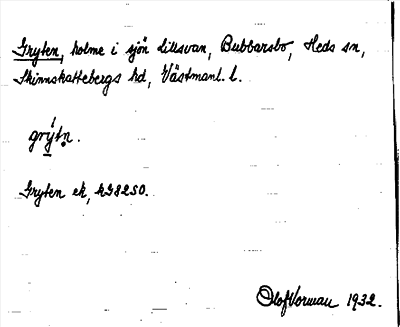 Gryten, holme i sjön Lillsvan, Bubbarsbo, Heds sn,
Skinnskattebergs hd, Västmanl. l.
grýtn.
Gryten ek,
Olof Vorman 1932.